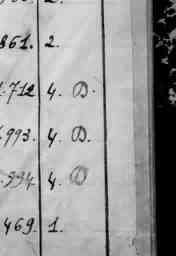 861. 2.
.712 4. D.
.993. 4. D.
.994. 4. D
469. 1.